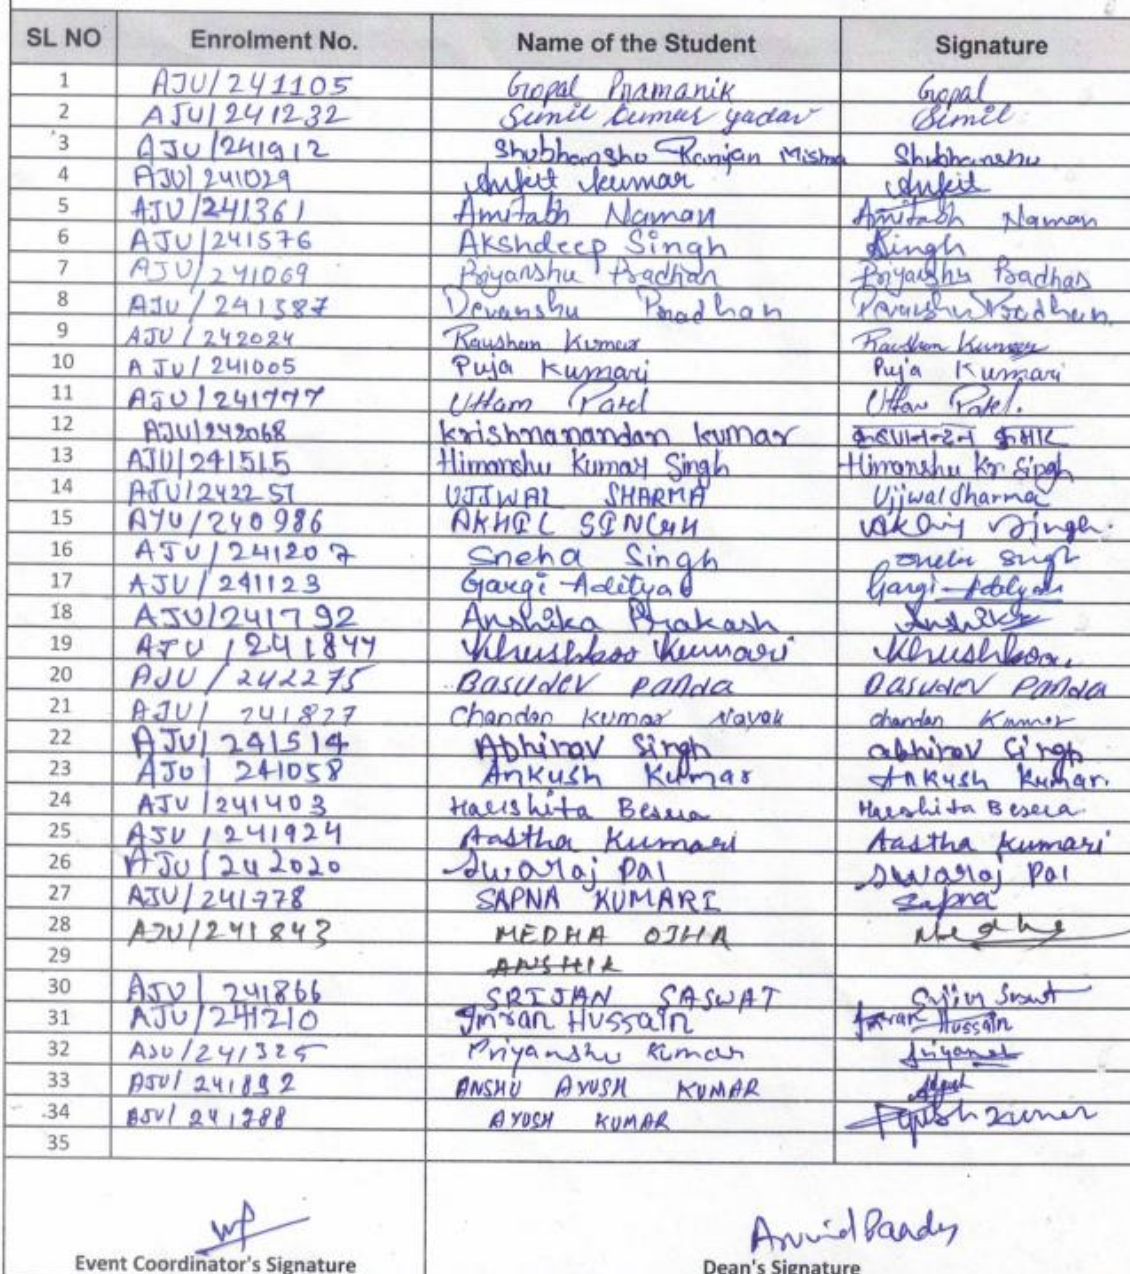 SL NO Enrolment No. Name of the Student Signature
1 AJU/241105 Gopal Pramanik Gopal
2 AJU/241232 Sunil kumar yadav Sunil
3 AJU/241912 Shubhanshu Ranjan Mishra Shubhanshu
4 AJU/241029 Ankit kumar Ankit
5 AJU/241361 Amitabh Naman Amitabh Naman
6 AJU/241576 Akshdeep Singh Singh
7 AJU/241069 Priyanshu Pradhan Priyanshu Pradhan
8 AJU/241387 Devanshu Pradhan Devanshu Pradhan
9 AJU/242024 Raushan Kumar Raushan Kumar
10 AJU/241005 Puja Kumari Puja Kumari
11 AJU/241777 Uttam Patel Uttam Patel.
12 AJU/242068 krishnanandan kumar कृष्णानन्दन कुमार
13 AJU/241515 Himanshu Kumar Singh Himanshu Kr Singh
14 AJU/242251 UJJWAL SHARMA Ujjwal Sharma
15 AJU/240986 AKHIL SINGH Akhil Singh.
16 AJU/241207 Sneha Singh Sneha Singh
17 AJU/241123 Gargi Aditya Gargi Aditya
18 AJU/241792 Anshika Prakash Anshika
19 AJU/241847 Khushboo Kumari Khushboo.
20 AJU/242275 Basudev panda Basudev panda
21 AJU/241827 Chandan Kumar Nayak chandan Kumar
22 AJU/241514 Abhinav Singh abhinav Singh
23 AJU/241058 Ankush Kumar Ankush Kumar.
24 AJU/241403 Harshita Besra Harshita Besra.
25 AJU/241924 Aastha Kumari Aastha Kumari
26 AJU/242020 Swaraj Pal Swaraj Pal
27 AJU/241778 SAPNA KUMARI Sapna
28 AJU/241843 MEDHA OJHA Medha
29 ANSHIK
30 AJU/241866 SRIJAN SASWAT
31 AJU/241210 Imran Hussain Imran Hussain
32 AJU/241325 Priyanshu Kumar
33 AJU/241892 ANSHU AYUSH KUMAR
34 AJU/241288 AYUSH KUMAR Ayush Kumar
35
Event Coordinator's Signature
Arvind Pandey
Dean's Signature